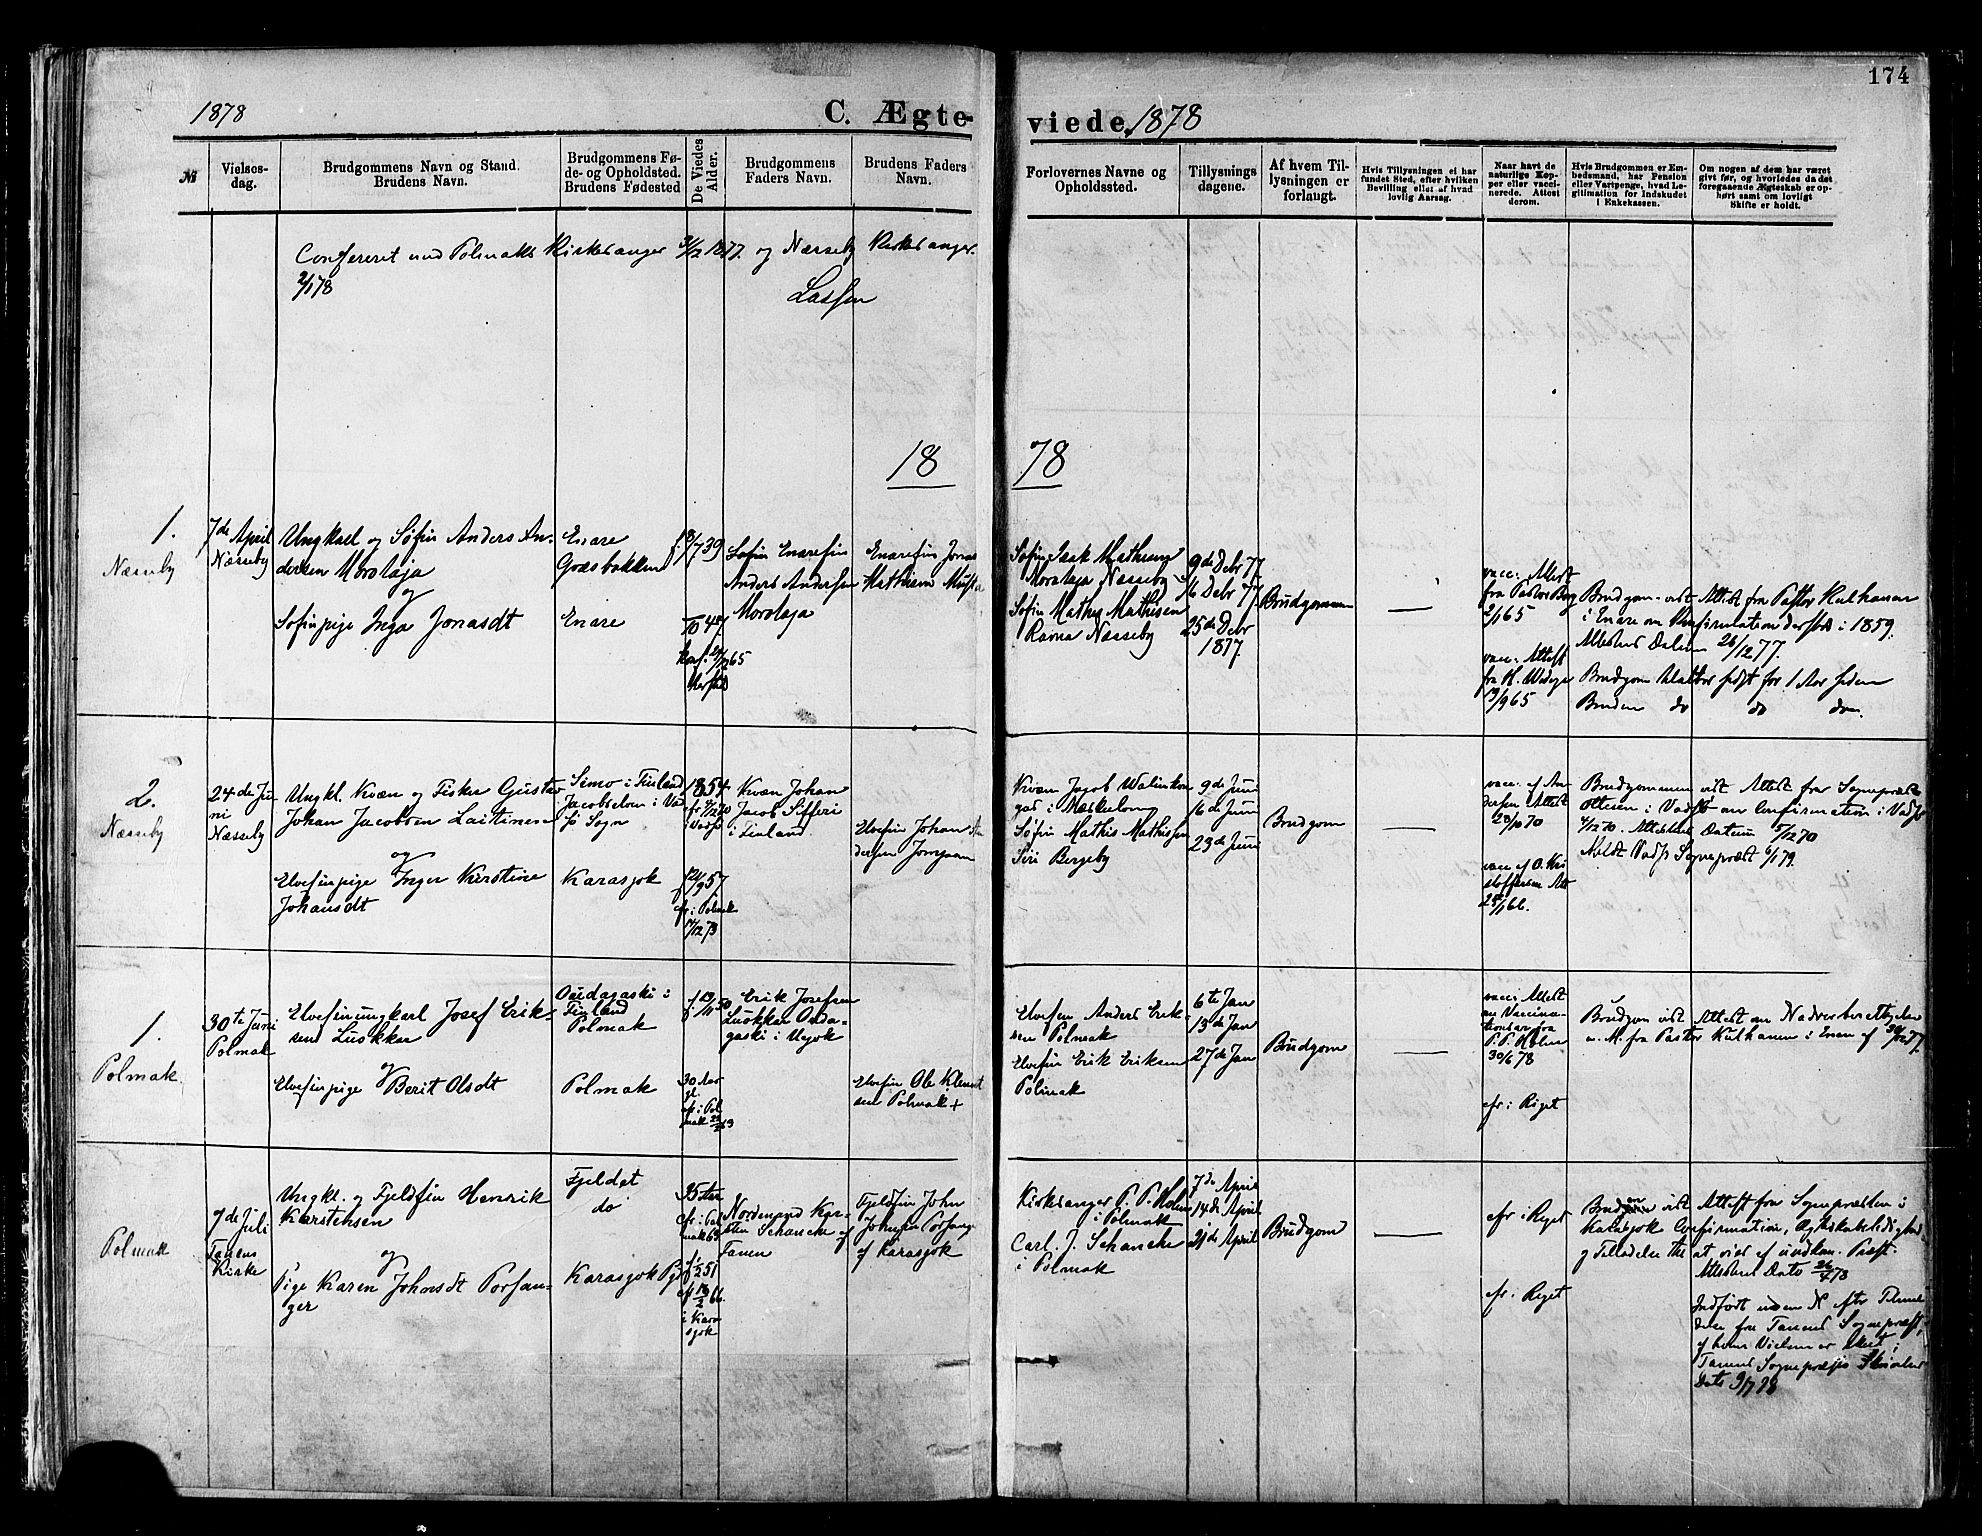 174
1878
C. Ægte-
viede. 1878
№
Vielses-
dag.
Brudgommens Navn og Stand.
Brudens Navn.
Brudgommens Fø-
de- og Opholdsted.
Brudens Fødested
De Viedes
Alder.
Brudgommens
Faders Navn.
Brudens Faders
Navn.
Forlovernes Navne og
Opholdssted.
Tillysnings
dagene.
Af hvem Til-
lysningen er
forlangt.
Hvis Tillysningen ei har
fundet Sted, efter hvilken
Bevilling eller af hvad
lovlig Aarsag.
Naar havt de
naturlige Kop-
per eller vacci-
nerede. Attest
derom.
Hvis Brudgommen er Em-
bedsmand, har Pension
eller Vartpenge, hvad Le-
gitimation for Indskudet
i Enkekassen.
Om nogen af dem har været
givt før, og hvorledes da det
foregaaende Ægteskab er op-
hørt samt om lovligt
Skifte er holdt.
Confereret med Polmaks Kirkesanger 3/12 1877. og Næsseby Kirkesanger.
2/1 78
Lassen
18
78
1.
Næsseby
7de April
Næsseby
Ungkarl og Søfin Anders An-
dersen Morotaja
og
Søfinpige Inga Jonasdt
Enare
Græsbakken
Enare
f 18/7 39
Søfin Enarefin
Anders Andersen
Morotaja
Enarefin Jonas
Mathisen
Søfin Isak Mathisen
Morotaja Næsseby
Søfin Mathis Mathisen
Næsseby
9de Debr 77
16 Debr 77
25de Debr
1877.
Brudgommen
vacc. Attest
fra Pastor
2/1 65
vacc. Attest
fra H.
19/9 65
Brudgom. vist Attest fra Pastor
i Enare om Confirmation dersteds i 1859.
Attestens Datum 26/12 77.
Brudgom Altbor sidst for 1 Aar siden
Bruden do do do.
2.
Næsseby
24de Ju-
ni
Næsseby
Ungkl. Kvæn og Fisker Gustav
Johan Jacobsen Laitinen
og
Elvefinpige Inger Kirstine
Johansdt
Simo i Finland
Jacobselven i Vad-
sø Sogn
Karasjok
1854
i Vadsø
f 21/9 57
cfr. i Polmak
14/12 73
Kvæn Johan
Jacob Sifferi
i Finland
Elvefin Johan An-
dersen
Kvæn Jacob
i Mæskelven
Søfin Mathis Mathisen
Siri Bergeby
9de Juni
16de Juni
23de Juni
Brudgom
vacc. af An-
dersen Attest
20/10 70
vacc af O. Kri-
stoffersen Att
25/1 66.
Brudgommen vist Attest fra Sognepræst
Ottesen i Vadsø om Confirmation i Vadsø
4/12 70. Attestens Datum 5/12 70
Meldt Vadsø Sognepræst 6/1 79.
1.
Polmak
30te Juni
Polmak
Elvefinungkarl Josef Erik-
sen Luokkar
og
Elvefinpige Berit Olsdt
i
Finland
Polmak
Polmak
30 Aar
gl.
cfr. i Pol-
mak
Erik Josefsen
Luokkar
i Utsjok
Elvefin Ole Klemet-
sen Polmak +
Elvefin Anders Erik-
sen Polmak
Elvefin Erik Eriksen
Polmak
6te Jan
13de Jan
27de Jan
Brudgom
vacc. Attest
om Vaccina-
tionen fra
P. P. Holm
30/6 78
cfr. i Riget
Brudgom vist Attest om
m. M. fra Pastor i Enare af 30/12 77.
Polmak
7de Juli
Tanens
Kirke
Ungkl. og Fjeldfin Henrik
Karstensen
og
Pige Karen Johnsdt Porsan-
ger
Fjeldet
do
Karasjok
35 Aar
cfr. i Pol-
mak 63
i Kara-
sjok
Nordmand Kar-
sten Schancke af
Tanen
Fjeldfin John
Johnsen Porsanger
af Karasjok
Kirkesanger P. P. Holm
i Polmak
Carl. J. Schancke
i Polmak
7de April
14de April
21de April
Brudgom
cfr i Riget
cfr. Riget
Bruden vist Attest fra Sognepræsten i
Karasjok Confirmation, Ægteskabsledighed
og Tilladelse til at vies af Præst.
Attestens Dato 26/4 78
Indført uden N. efter Tilmel-
delse fra Tanens Sognepræst,
af hvem Vielsen er skeet.
Tanens Sognepræsts Skrivelse
Dato 9/7 78